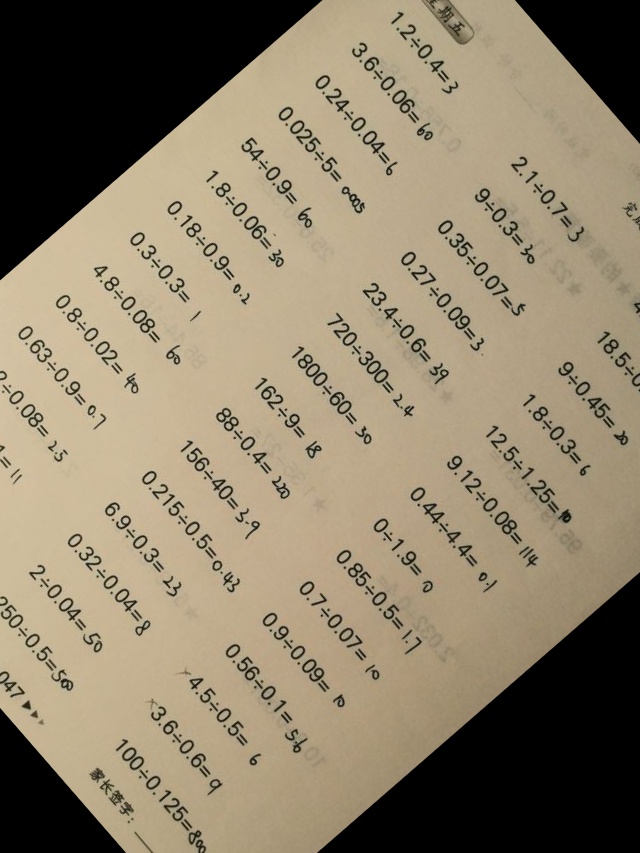 期五
1.2÷0.4=3
3.6÷0.06=60
0.24÷0.04=6
0.025÷5=0.005
54÷0.9=60
1.8÷0.06=30
0.18÷0.9=0.2
0.3÷0.3=1
4.8÷0.08=60
0.8÷0.02=40
0.63÷0.9=0.7
÷0.08=25
=11
2.1÷0.7=3
9÷0.3=30
0.35÷0.07=5
0.27÷0.09=3
23.4÷0.6=39
720÷300=2.4
1800÷60=30
162÷9=18
88÷0.4=220
156÷40=3.9
0.215÷0.5=0.43
6.9÷0.3=23
0.32÷0.04=8
2÷0.04=50
250÷0.5=500
047
18.5÷0.
9÷0.45=20
1.8÷0.3=6
12.5÷1.25=10
9.12÷0.08=114
0.44÷4.4=0.1
0÷1.9=0
0.85÷0.5=1.7
0.7÷0.07=10
0.9÷0.09=10
0.56÷0.1=5.6
4.5÷0.5=6
3.6÷0.6=9
100÷0.125=800
家长签字：